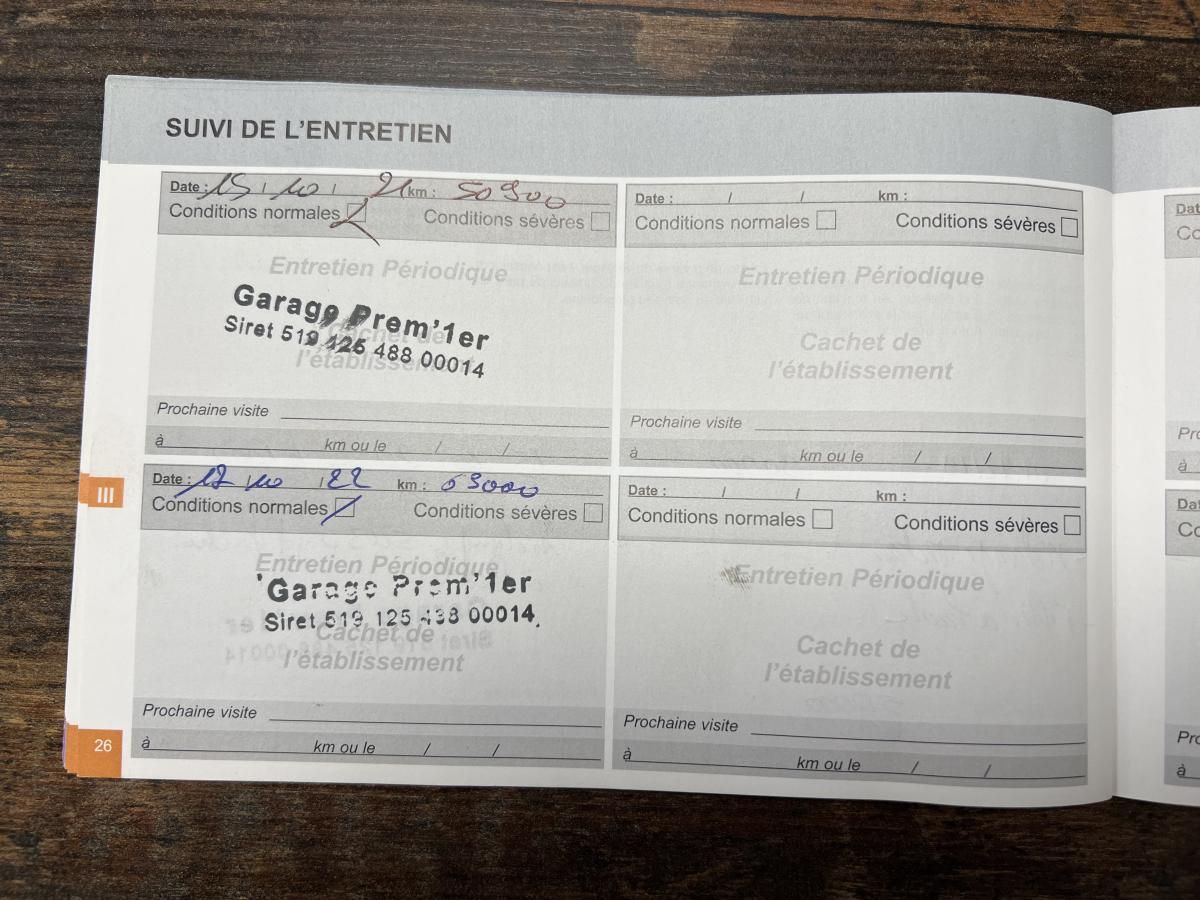 SUIVI DE L'ENTRETIEN
Date : 15 / 10 / 21 km : 50 900
Conditions normales Conditions sévères
Entretien Périodique
Garage Prem'1er
Siret 519 125 488 00014
Cachet de
l'établissement
Prochaine visite
à km ou le / /
Date : / / km :
Conditions normales Conditions sévères
Entretien Périodique
Cachet de
l'établissement
Prochaine visite
à km ou le / /
III
Date : 12 / 10 / 22 km : 63000
Conditions normales Conditions sévères
Entretien Périodique
Garage Prem'1er
Siret 519 125 488 00014
Cachet de
l'établissement
Prochaine visite
à km ou le / /
Date : / / km :
Conditions normales Conditions sévères
Entretien Périodique
Cachet de
l'établissement
Prochaine visite
à km ou le / /
26
Dat
Co
Pro
à
Dat
Co
Pro
à